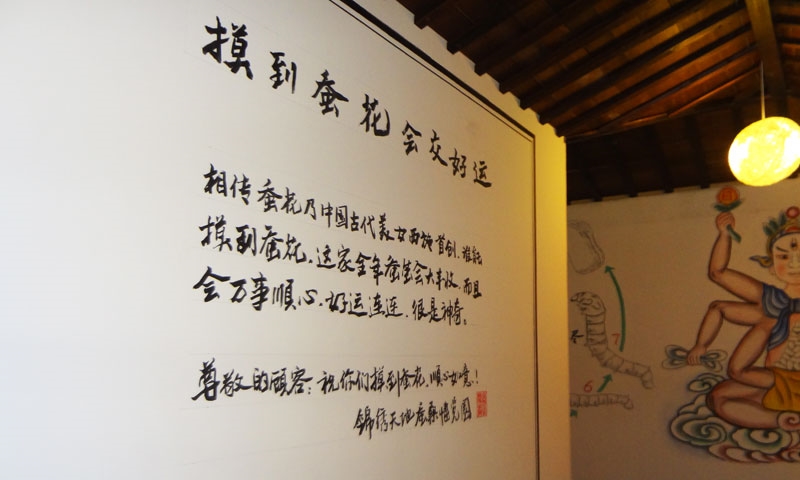 摸到蚕花会交好运
相传蚕花乃中国古代美女西施首创,谁能
摸到蚕花,这家全年蚕生会大丰收,而且
会万事顺心,好运连连,很是神奇。
尊敬的顾客:祝你们摸到蚕花,顺心如意!
錦绣天地蚕桑博览園
7
6